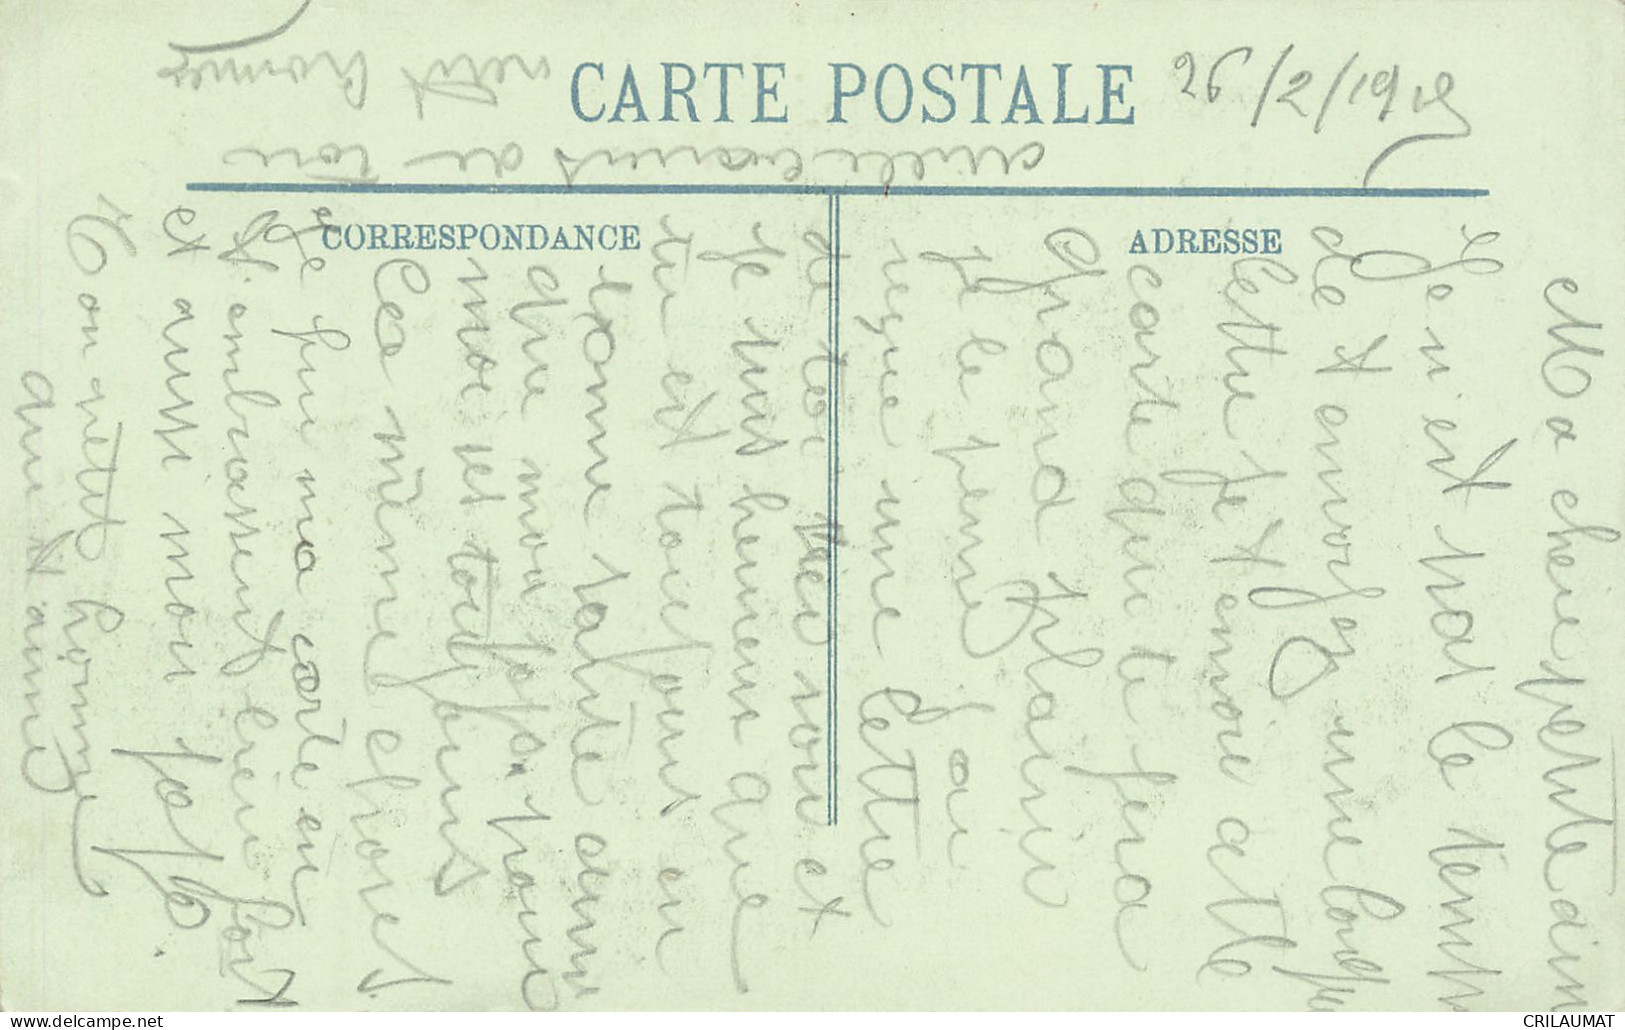 CARTE POSTALE
26/2/1915
CORRESPONDANCE
ADRESSE
Ma chere petite aim
Je n'est pas le temps
de t envoyez une longue
lettre je t envoie cette
carte qui te fera
Grand plaisir
je le pense j ai
reçue une lettre
de toi hier soir et
je suis heureux que
tu est toujours en
bonne santé comme
que moi Jojo. pour
moi set toujours
la même choses.
Je fini ma carte en
t embrassent bien fort
et aussi mon Jojo.
Ton petit homme
qui t aime
petit homme
de ton
CRILAUMAT